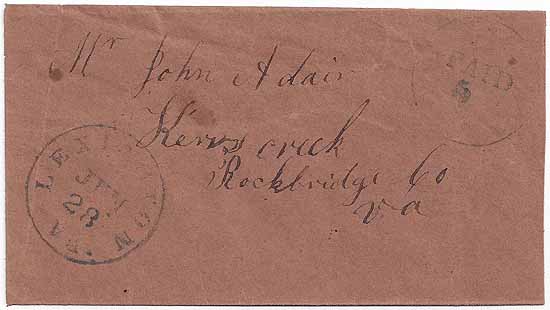 Mr John Adair
Kerrs creek
Rockbridge Co
Va
PAID
5
LEXINGTON VA
JUN
28